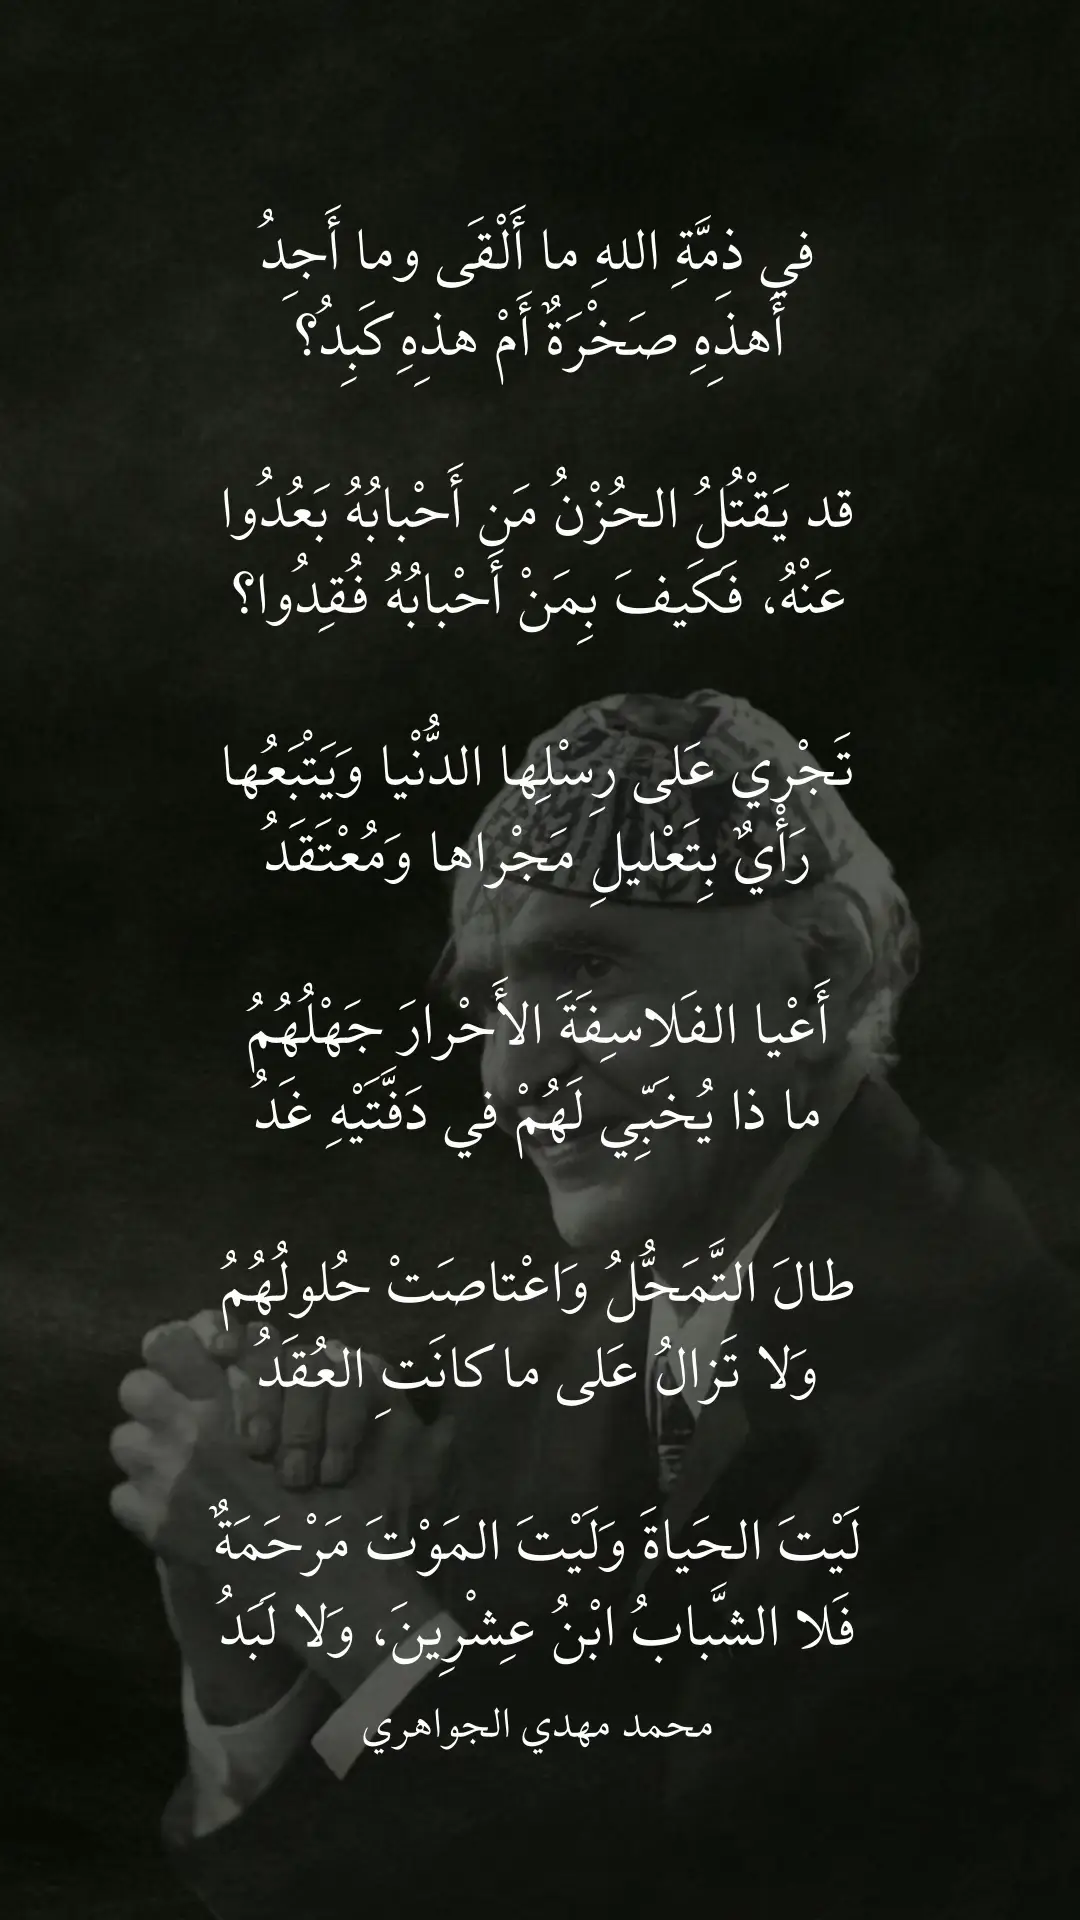 في ذِمَّةِ اللهِ ما أَلْقَى وما أَجِدُ
أَهذِهِ صَخْرَةٌ أَمْ هذِهِ كَبِدُ؟
قد يَقْتُلُ الحُزْنُ مَن أَحْبابُهُ بَعُدُوا
عَنْهُ، فَكَيفَ بِمَنْ أَحْبابُهُ فُقِدُوا؟
تَجْرِي عَلى رِسْلِها الدُّنْيا وَيَتْبَعُها
رَأْيٌ بِتَعْليلِ مَجْراها وَمُعْتَقَدُ
أَعْيا الفَلاسِفَةَ الأَحْرارَ جَهْلُهُمُ
ما ذا يُخَبِّي لَهُمْ في دَفَّتَيْهِ غَدُ
طالَ التَّمَحُّلُ وَاعْتاصَتْ حُلولُهُمُ
وَلا تَزالُ عَلى ما كانَتِ العُقَدُ
لَيْتَ الحَياةَ وَلَيْتَ المَوْتَ مَرْحَمَةٌ
فَلا الشَّبابُ ابْنُ عِشْرِينَ، وَلا لَبَدُ
محمد مهدي الجواهري